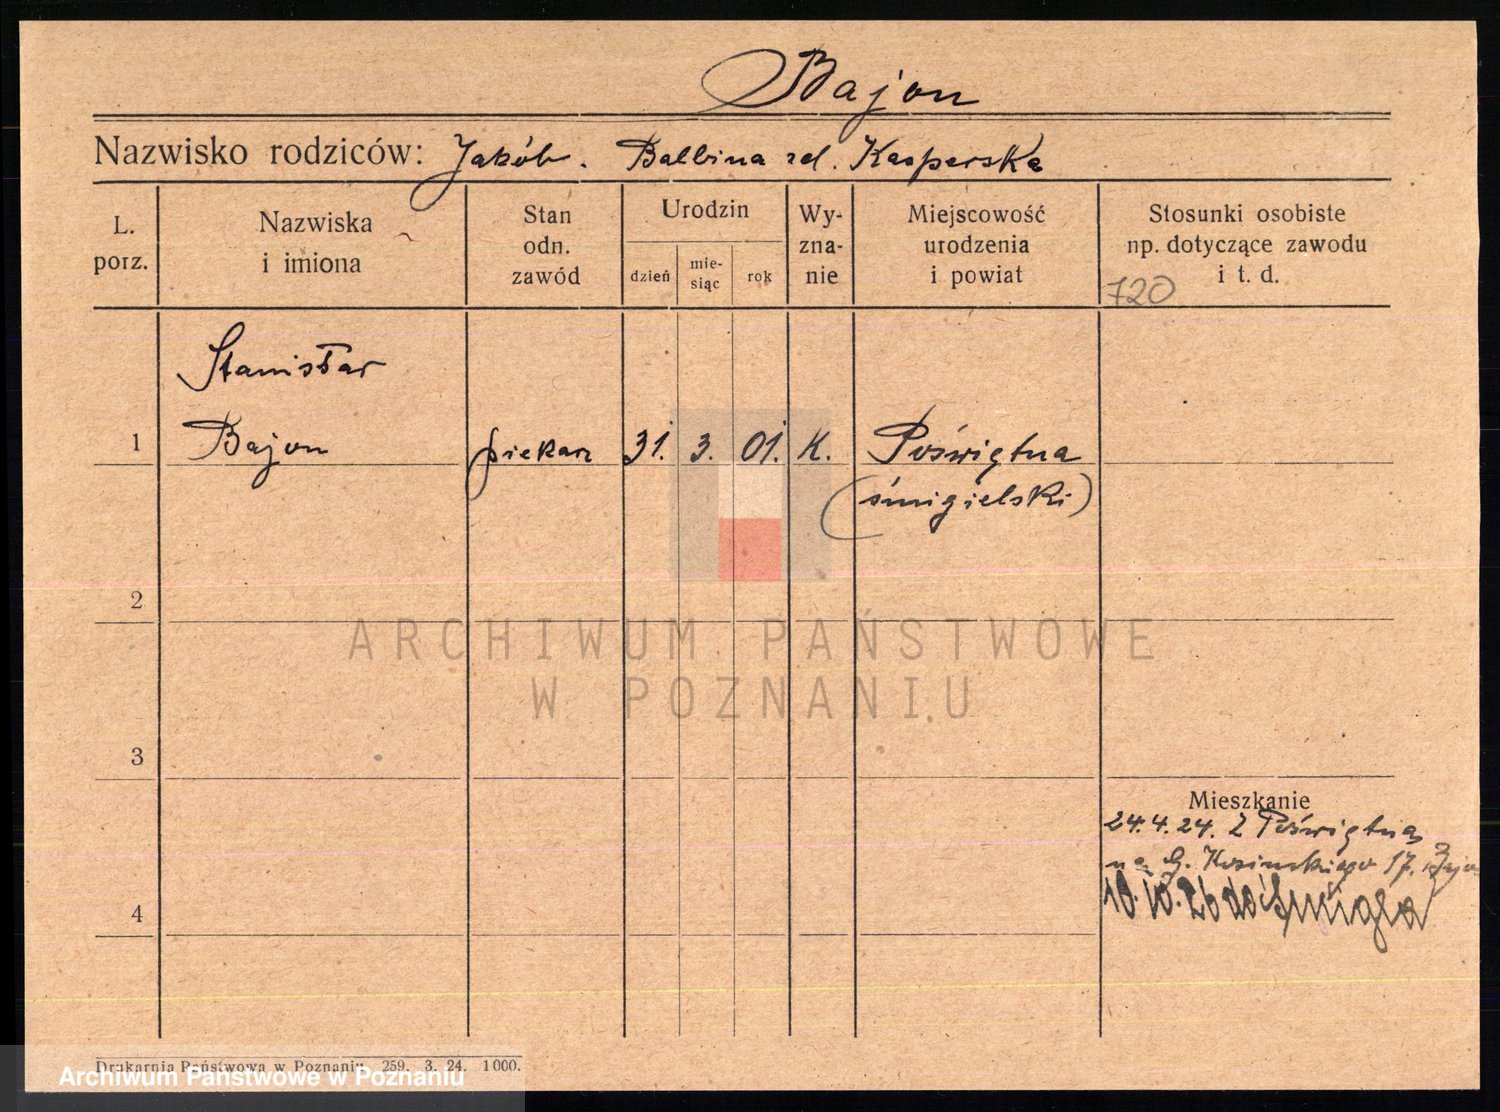 Bajon
Nazwisko rodziców: Jakób. Balbina zd. Kasperska
L. porz.
Nazwiska i imiona
Stan odn. zawód
Urodzin
dzień
mie-
siąc
rok
Wy-
zna-
nie
Miejscowość
urodzenia
i powiat
Stosunki osobiste
np. dotyczące zawodu
i t. d.
720
Stanisław
1 Bajon piekarz 31. 3. 01. K. Poświętna
(śmigielski)
2
ARCHIWUM PAŃSTWOWE
W POZNANIU
3
Mieszkanie
24.4.24. Z Poświętna
na G. Kosińskiego 17.
10.10.26 do Śmigla
4
Drukarnia Państwowa w Poznaniu 259. 3. 24. 1000.
Archiwum Państwowe w Poznaniu